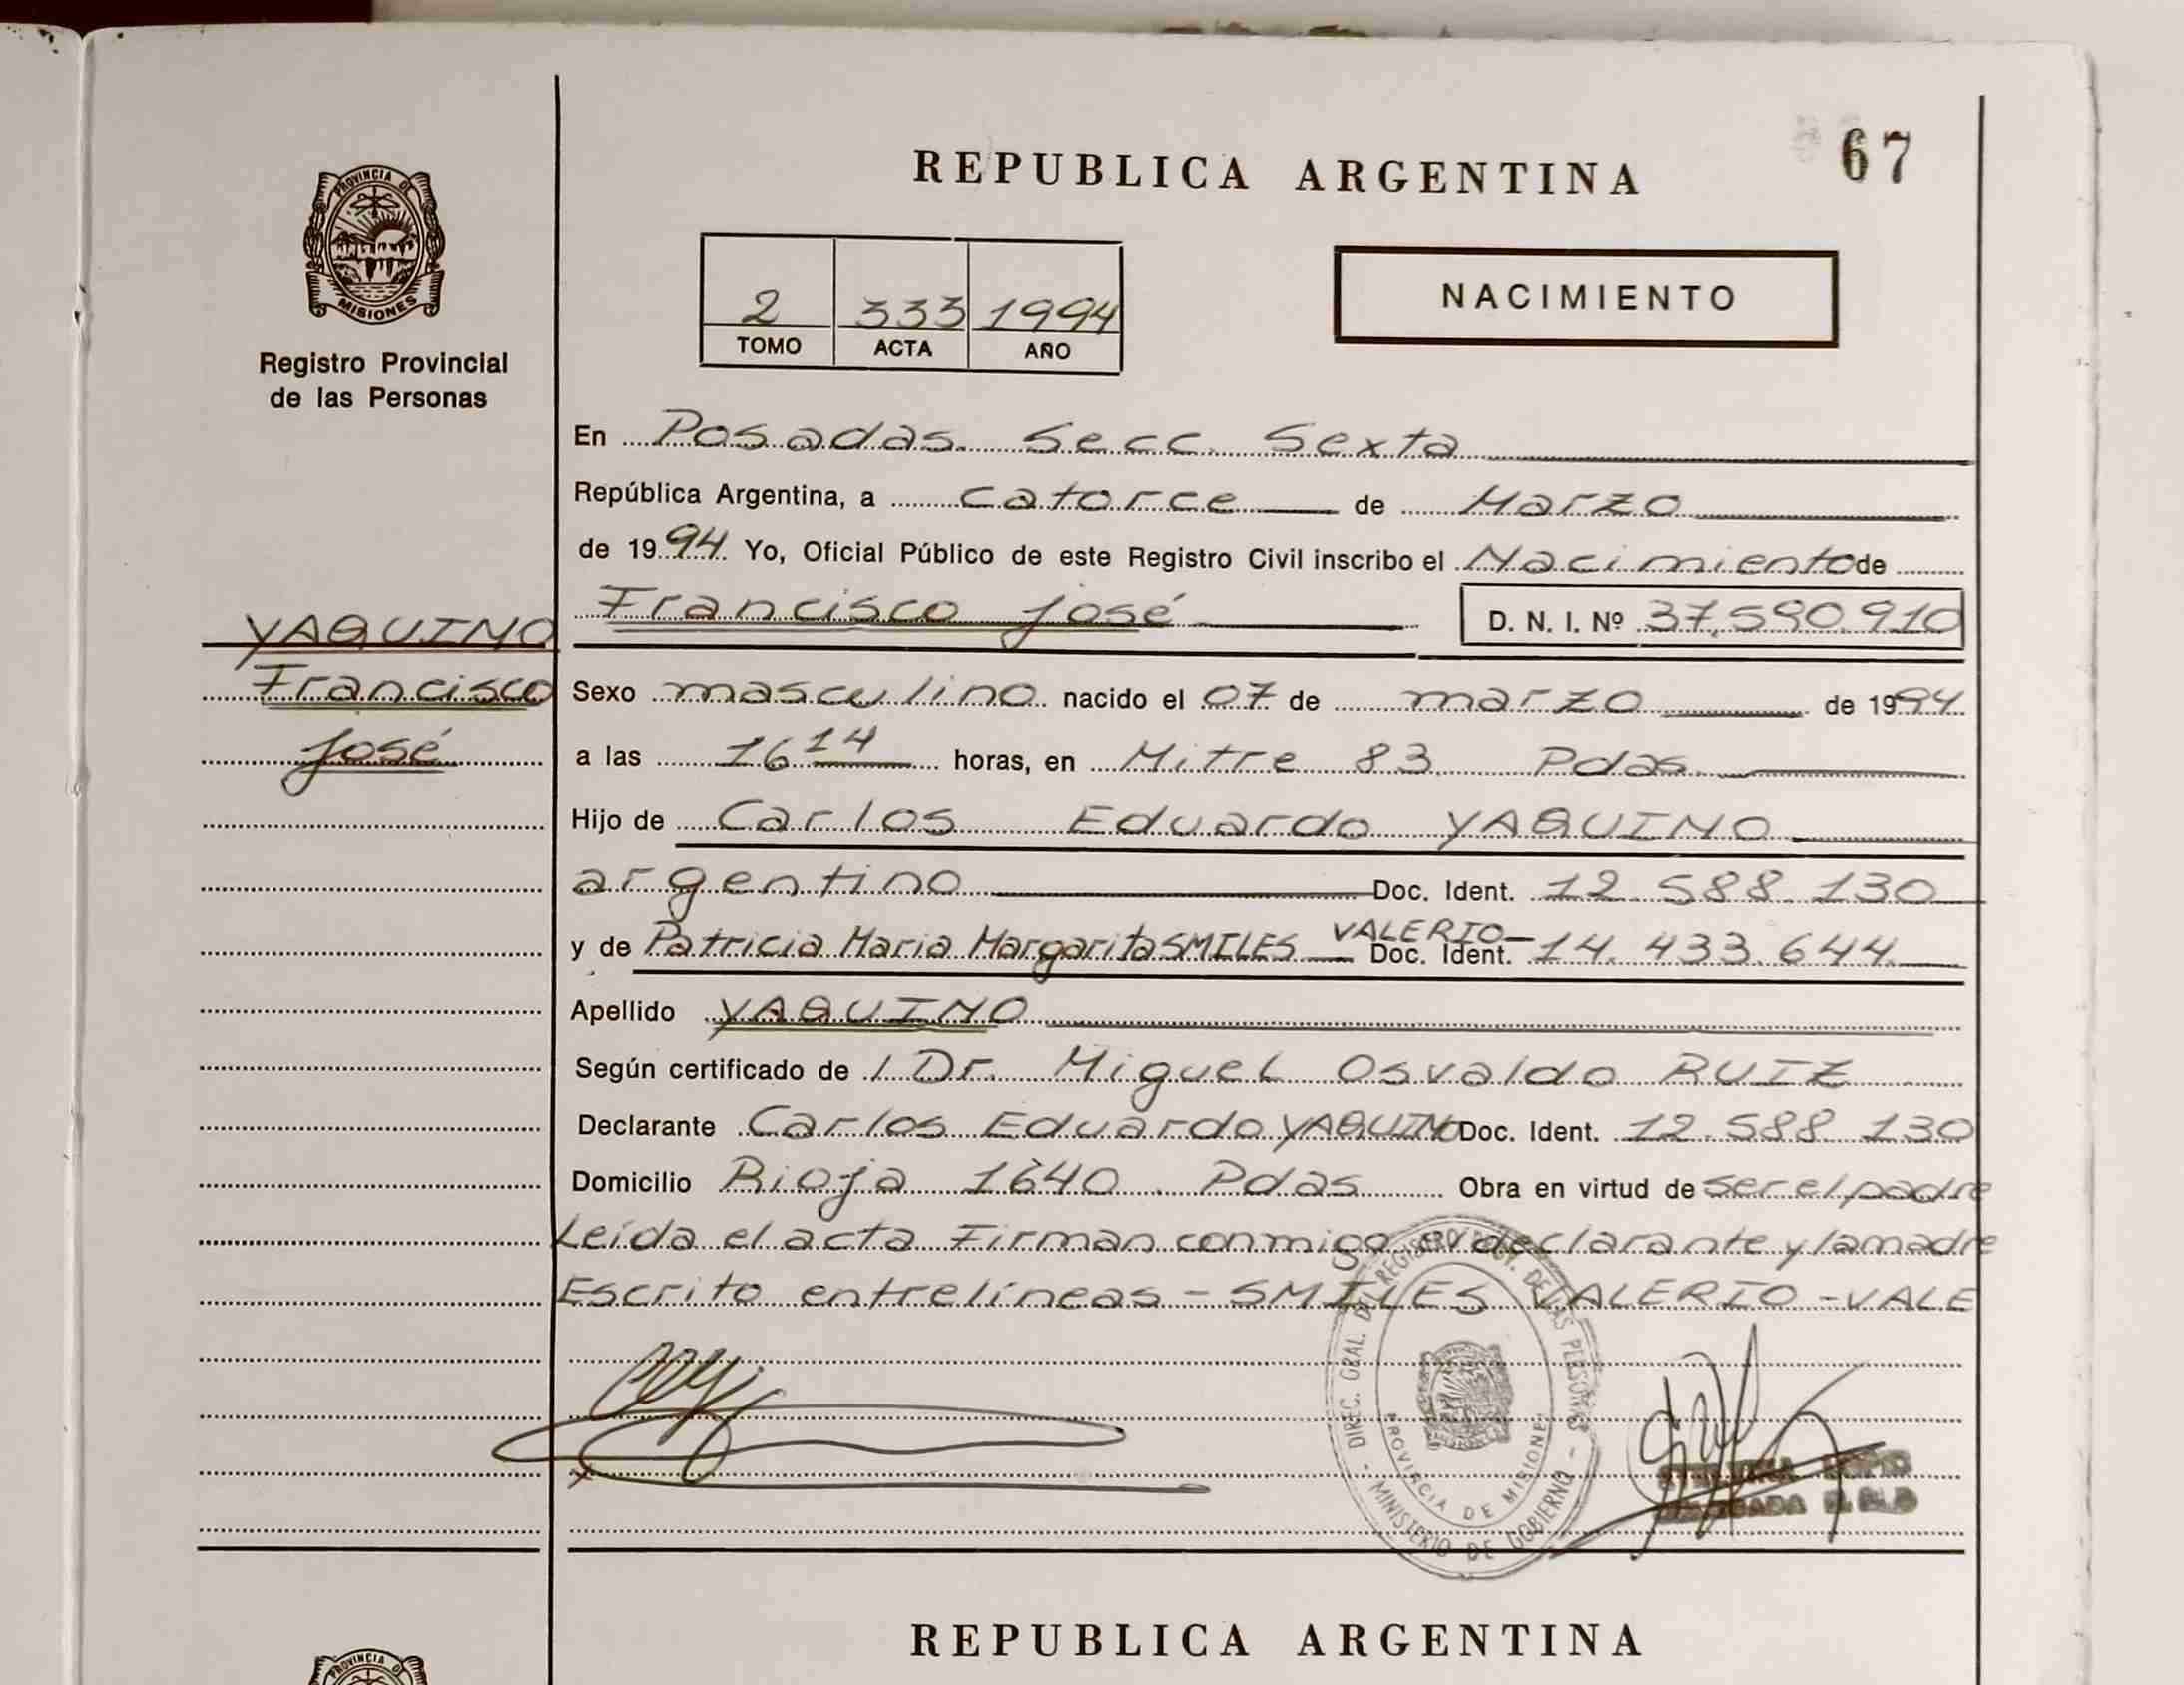 REPUBLICA ARGENTINA
67
PROVINCIA DE
MISIONES
Registro Provincial
de las Personas
2 333 1994
TOMO ACTA AÑO
NACIMIENTO
En Posadas. Secc. Sexta
República Argentina, a catorce de Marzo
de 1994 Yo, Oficial Público de este Registro Civil inscribo el Nacimiento de
Francisco José D. N. I. Nº 37.590.910
YAQUINO
Francisco
José
Sexo masculino nacido el 07 de marzo de 1994
a las 16 14 horas, en Mitre 83 Pdas.
Hijo de Carlos Eduardo YAQUINO
argentino Doc. Ident. 12.588.130
y de Patricia Maria Margarita SMILES VALERIO— Doc. Ident. 14.433.644
Apellido YAQUINO
Según certificado de / Dr. Miguel Osvaldo RUIZ
Declarante Carlos Eduardo YAQUINO Doc. Ident. 12.588.130
Domicilio Rioja 1640. Pdas Obra en virtud de ser el padre
Leída el acta Firman conmigo el declarante y la madre
Escrito entrelíneas - SMILES VALERIO - VALE
DIREC. GRAL. DEL REGISTRO PROV. DE LAS PERSONAS
PROVINCIA DE MISIONES
- MINISTERIO DE GOBIERNO -
REPUBLICA ARGENTINA
PROVINCIA DE